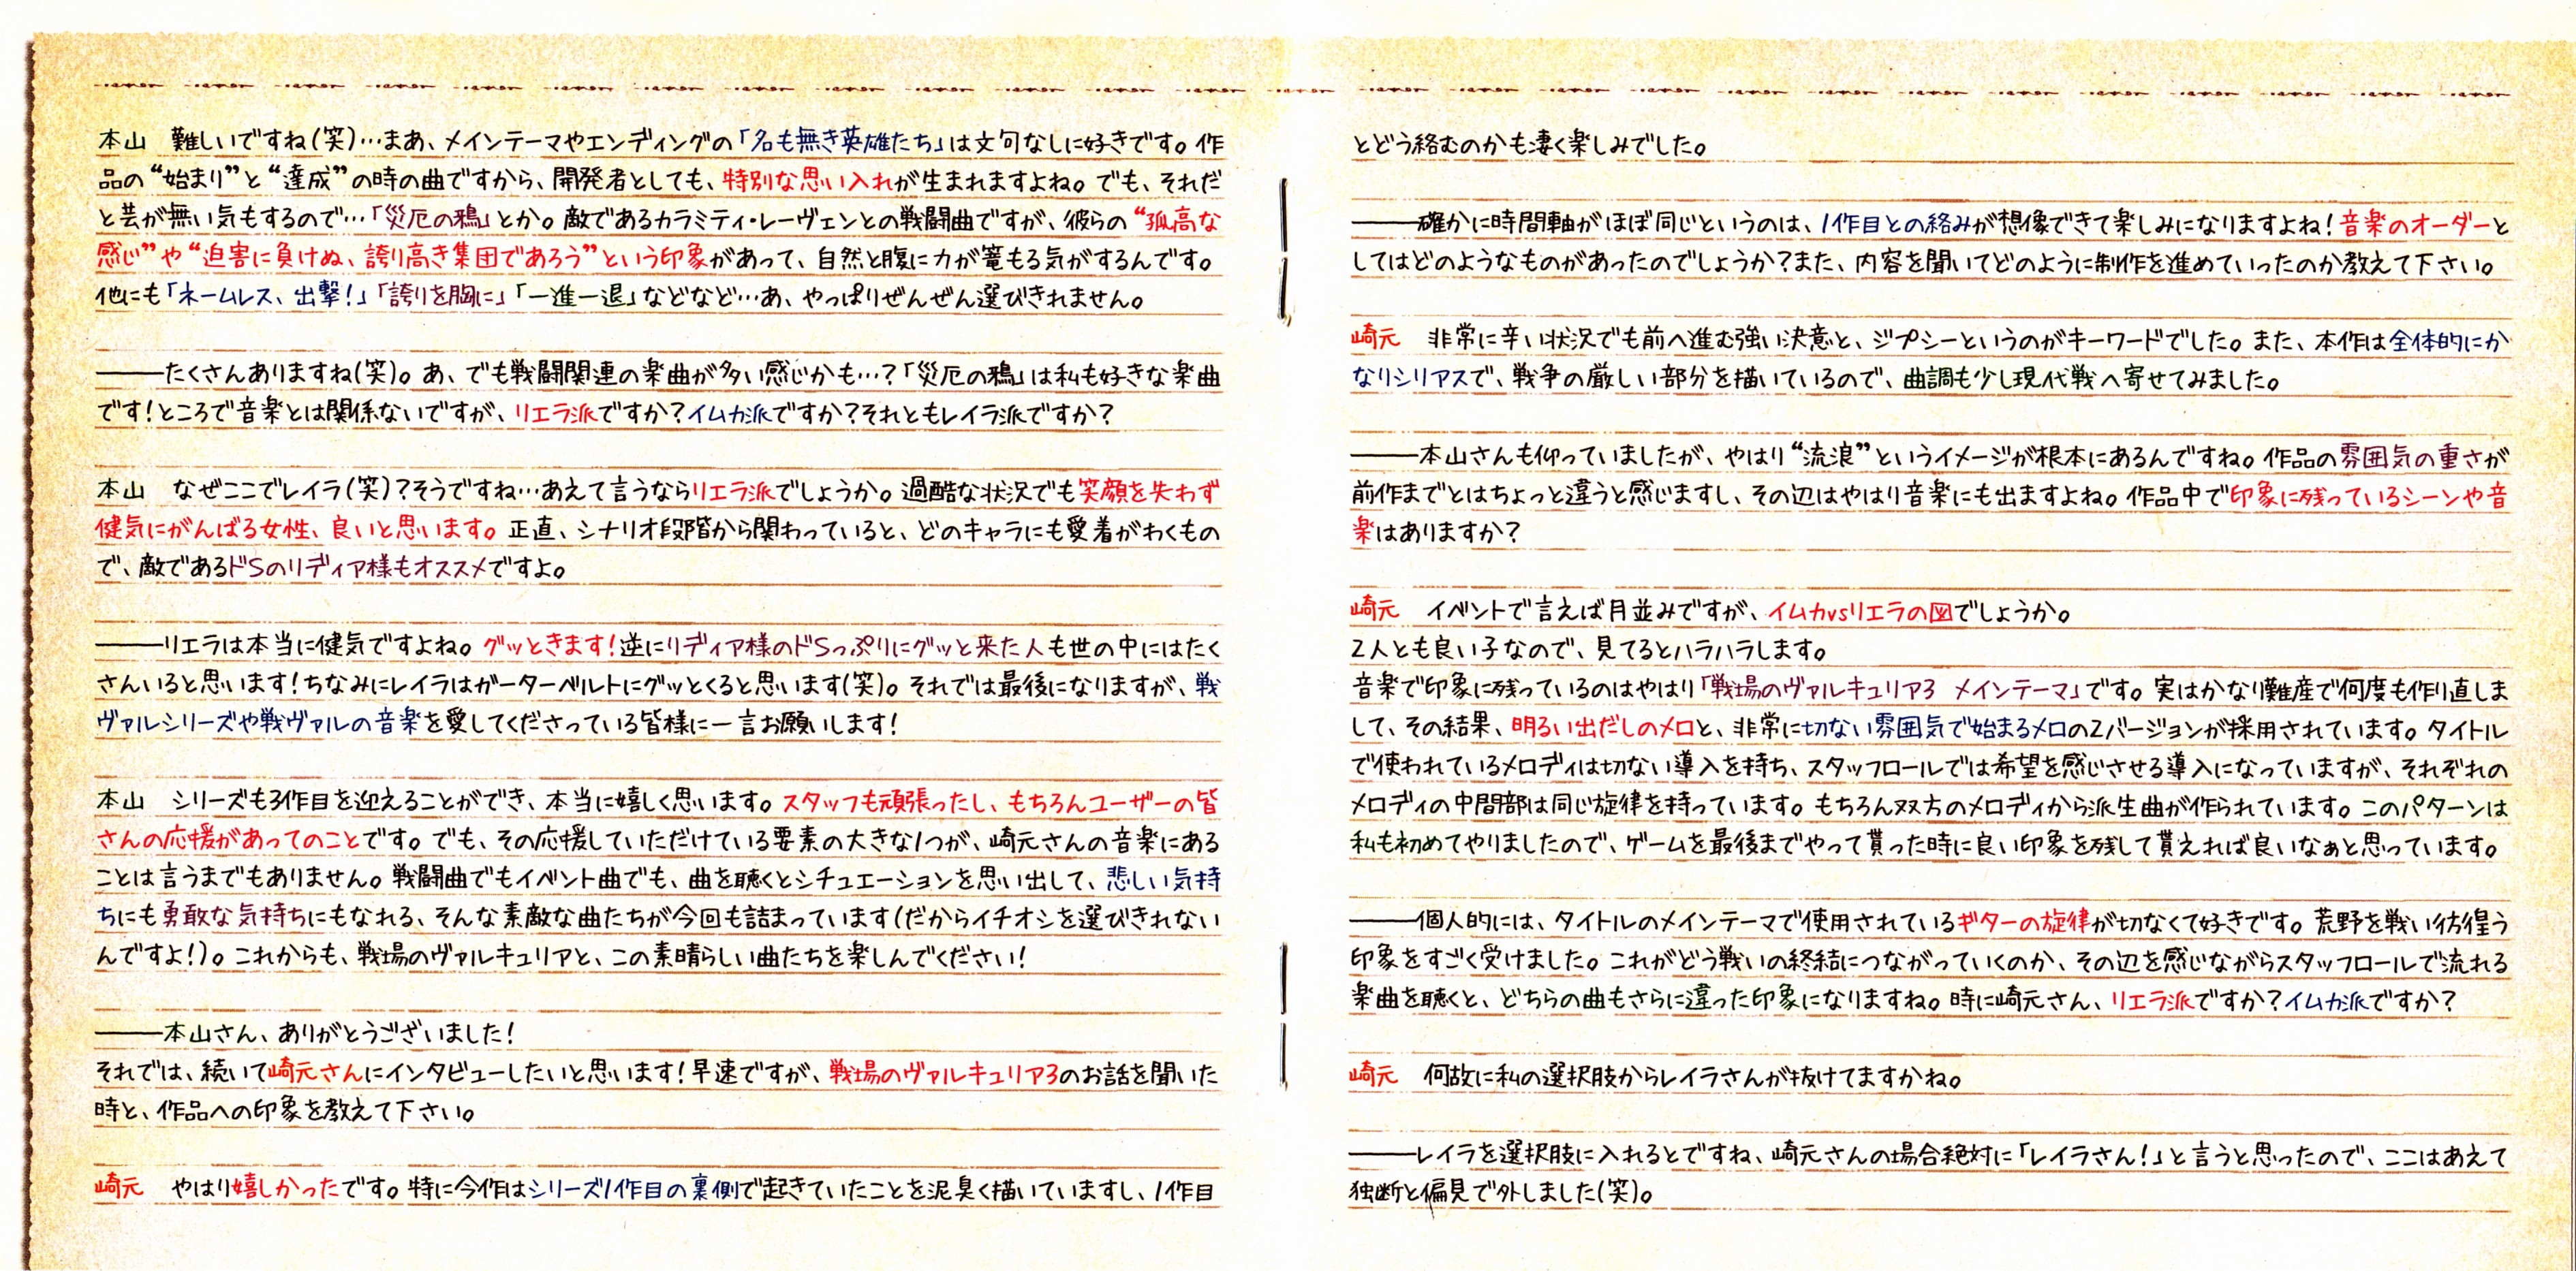 本山　難しいですね(笑)…まあ、メインテーマやエンディングの「名も無き英雄たち」は文句なしに好きです。作
品の“始まり”と“達成”の時の曲ですから、開発者としても、特別な思い入れが生まれますよね。でも、それだ
と芸が無い気もするので…「災厄の鴉」とか。敵であるカラミティ・レーヴェンとの戦闘曲ですが、彼らの“孤高な
感じ”や“迫害に負けぬ、誇り高き集団であろう”という印象があって、自然と腹に力が篭もる気がするんです。
他にも「ネームレス、出撃！」「誇りを胸に」「一進一退」などなど…あ、やっぱりぜんぜん選びきれません。
―――たくさんありますね(笑)。あ、でも戦闘関連の楽曲が多い感じかも…？「災厄の鴉」は私も好きな楽曲
です！ところで音楽とは関係ないですが、リエラ派ですか？イムカ派ですか？それともレイラ派ですか？
本山　なぜここでレイラ(笑)？そうですね…あえて言うならリエラ派でしょうか。過酷な状況でも笑顔を失わず
健気にがんばる女性、良いと思います。正直、シナリオ段階から関わっていると、どのキャラにも愛着がわくもの
で、敵であるドSのリディア様もオススメですよ。
―――リエラは本当に健気ですよね。グッときます！逆にリディア様のドSっぷりにグッと来た人も世の中にはたく
さんいると思います！ちなみにレイラはガーターベルトにグッとくると思います(笑)。それでは最後になりますが、戦
ヴァルシリーズや戦ヴァルの音楽を愛してくださっている皆様に一言お願いします！
本山　シリーズも3作目を迎えることができ、本当に嬉しく思います。スタッフも頑張ったし、もちろんユーザーの皆
さんの応援があってのことです。でも、その応援していただけている要素の大きな1つが、崎元さんの音楽にある
ことは言うまでもありません。戦闘曲でもイベント曲でも、曲を聴くとシチュエーションを思い出して、悲しい気持
ちにも勇敢な気持ちにもなれる、そんな素敵な曲たちが今回も詰まっています(だからイチオシを選びきれない
んですよ！)。これからも、戦場のヴァルキュリアと、この素晴らしい曲たちを楽しんでください！
―――本山さん、ありがとうございました！
それでは、続いて崎元さんにインタビューしたいと思います！早速ですが、戦場のヴァルキュリア3のお話を聞いた
時と、作品への印象を教えて下さい。
崎元　やはり嬉しかったです。特に今作はシリーズ1作目の裏側で起きていたことを泥臭く描いていますし、1作目
とどう絡むのかも凄く楽しみでした。
―――確かに時間軸がほぼ同じというのは、1作目との絡みが想像できて楽しみになりますよね！音楽のオーダーと
してはどのようなものがあったのでしょうか？また、内容を聞いてどのように制作を進めていったのか教えて下さい。
崎元　非常に辛い状況でも前へ進む強い決意と、ジプシーというのがキーワードでした。また、本作は全体的にか
なりシリアスで、戦争の厳しい部分を描いているので、曲調も少し現代戦へ寄せてみました。
―――本山さんも仰っていましたが、やはり“流浪”というイメージが根本にあるんですね。作品の雰囲気の重さが
前作までとはちょっと違うと感じますし、その辺はやはり音楽にも出ますよね。作品中で印象に残っているシーンや音
楽はありますか？
崎元　イベントで言えば月並みですが、イムカvsリエラの図でしょうか。
2人とも良い子なので、見てるとハラハラします。
音楽で印象に残っているのはやはり「戦場のヴァルキュリア3　メインテーマ」です。実はかなり難産で何度も作り直しま
して、その結果、明るい出だしのメロと、非常に切ない雰囲気で始まるメロの2バージョンが採用されています。タイトル
で使われているメロディは切ない導入を持ち、スタッフロールでは希望を感じさせる導入になっていますが、それぞれの
メロディの中間部は同じ旋律を持っています。もちろん双方のメロディから派生曲が作られています。このパターンは
私も初めてやりましたので、ゲームを最後までやって貰った時に良い印象を残して貰えれば良いなぁと思っています。
―――個人的には、タイトルのメインテーマで使用されているギターの旋律が切なくて好きです。荒野を戦い彷徨う
印象をすごく受けました。これがどう戦いの終結につながっていくのか、その辺を感じながらスタッフロールで流れる
楽曲を聴くと、どちらの曲もさらに違った印象になりますね。時に崎元さん、リエラ派ですか？イムカ派ですか？
崎元　何故に私の選択肢からレイラさんが抜けてますかね。
―――レイラを選択肢に入れるとですね、崎元さんの場合絶対に「レイラさん！」と言うと思ったので、ここはあえて
独断と偏見で外しました(笑)。